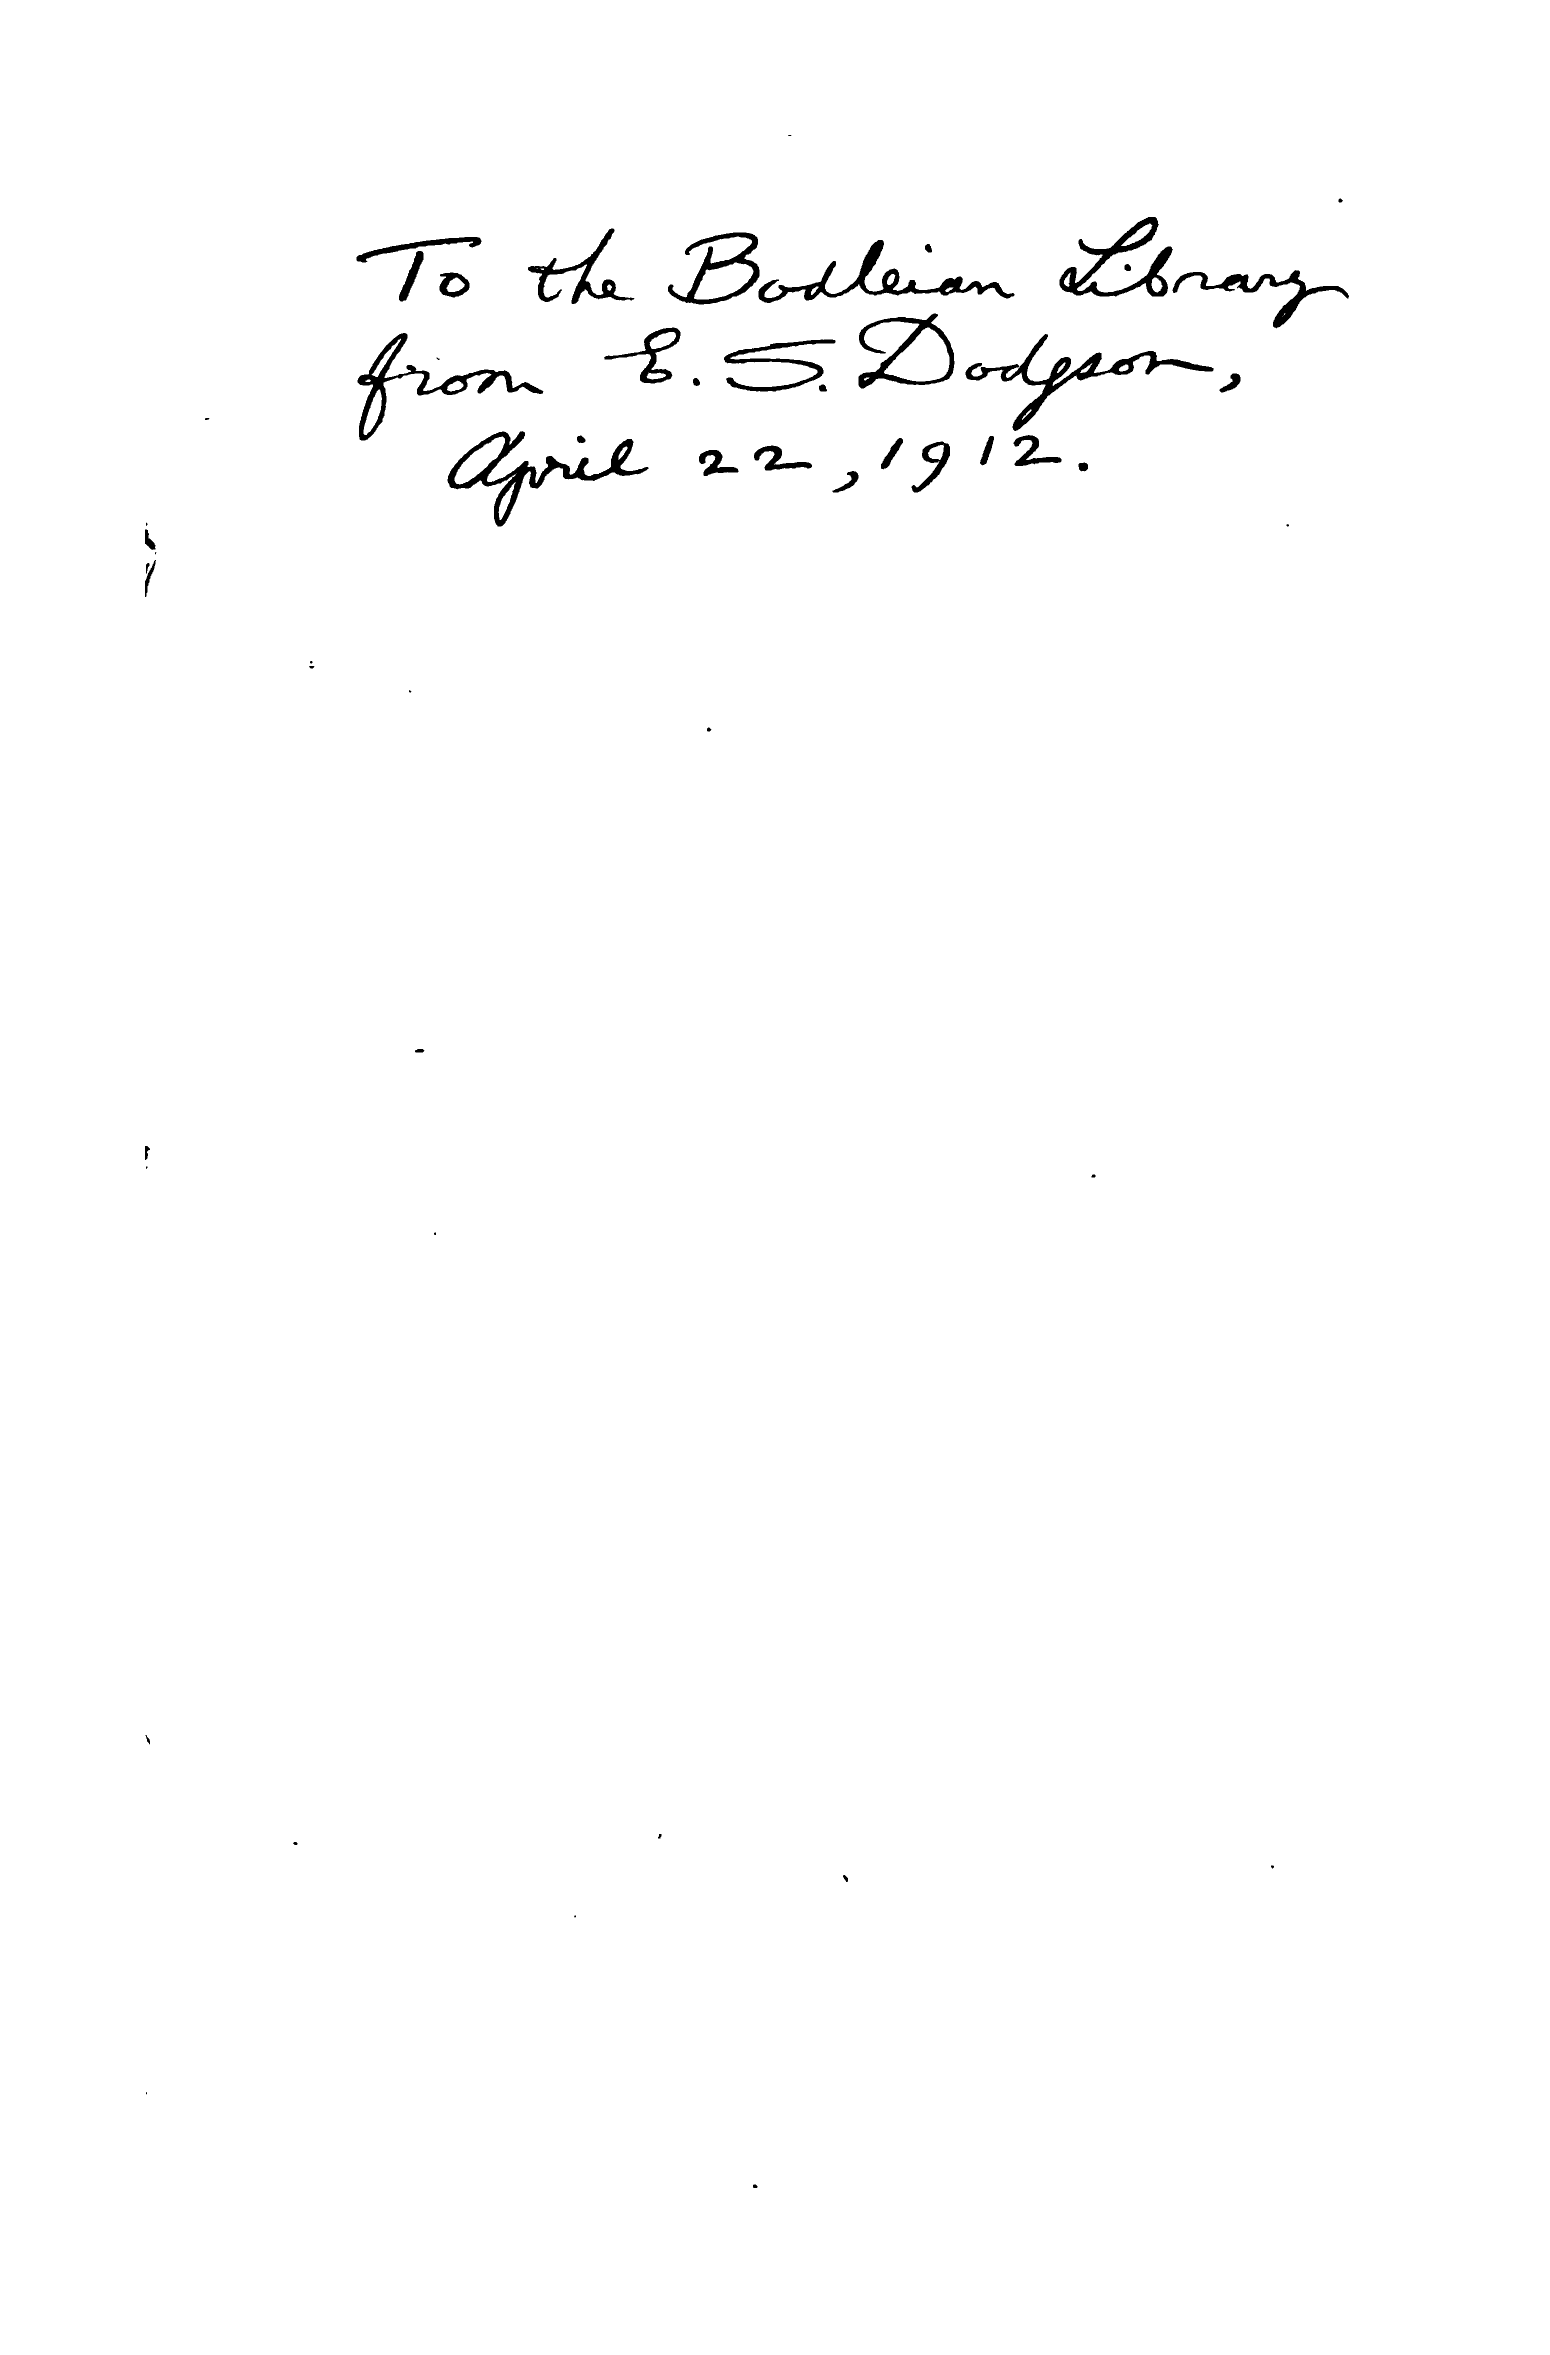 To the Bodleian Library
from E. S. Dodgson,
April 22, 1912.